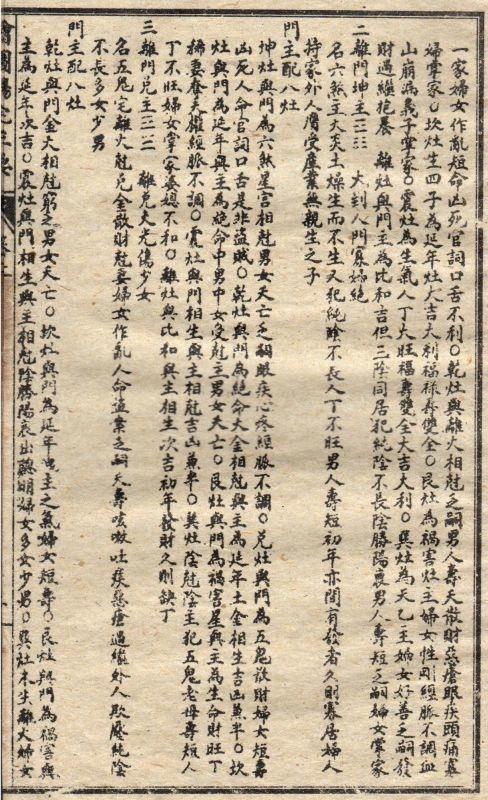 一家婦女作亂短命凶死官詞口舌不利〇乾灶與離火相尅乏嗣男人壽夭散財惡瘡眼疾頭痛寡
婦掌家〇坎灶生四子為延年灶大吉大利福祿壽雙全〇艮灶為禍害灶主婦女性剛經脈不調血
山崩漏義子掌家〇震灶為生氣人丁大旺福壽雙全大吉大利〇巽灶為天乙主婦女好善乏嗣發
財過繼抱養 離灶與門主為比和吉但三陰同居犯純陰不長陰勝陽衰男人壽短乏嗣婦女掌家
二離門坤主 火到人門寡婦絕
名六煞主火炎土燥生而不生又犯純陰不長人丁不旺男人壽短初年亦間有發者久則寡居婦人
持家外人膺受產業無親生之子
門主配八灶
坤灶與門為六煞星宮相尅男女夭亡乏嗣眼疾心疼經脈不調〇兌灶與門為五鬼散財婦女短壽
凶死人命官詞口舌是非盜賊〇乾灶與門為絕命火金相尅與主為延年土金相生吉凶兼半〇坎
灶與門為延年與主為絕命中男中女受尅主男女夭亡〇艮灶與門為禍害星與主為生命財旺丁
稀妻奪夫權經脈不調〇震灶與門相生與主相尅吉凶兼半〇巽灶陰尅陰主犯五鬼老母壽短人
丁不旺婦女掌家婆媳不和〇離灶與比和與主相生次吉初年發財久則缺丁
三離門兌主 離兌火光傷少女
名五鬼宅離火尅兌金散財尅妻婦女作亂人命盜案乏嗣夭壽咳嗽吐痰惡瘡過繼外人欺壓純陰
不長多女少男
門主配八灶
乾灶與門金火相尅窮乏男女夭亡〇坎灶與門為延年洩主之氣婦女短壽〇艮灶與門為禍害與
主為延年次吉〇震灶與門相生與主相尅陰勝陽衰出聰明婦女多女少男〇巽灶木生離火婦女